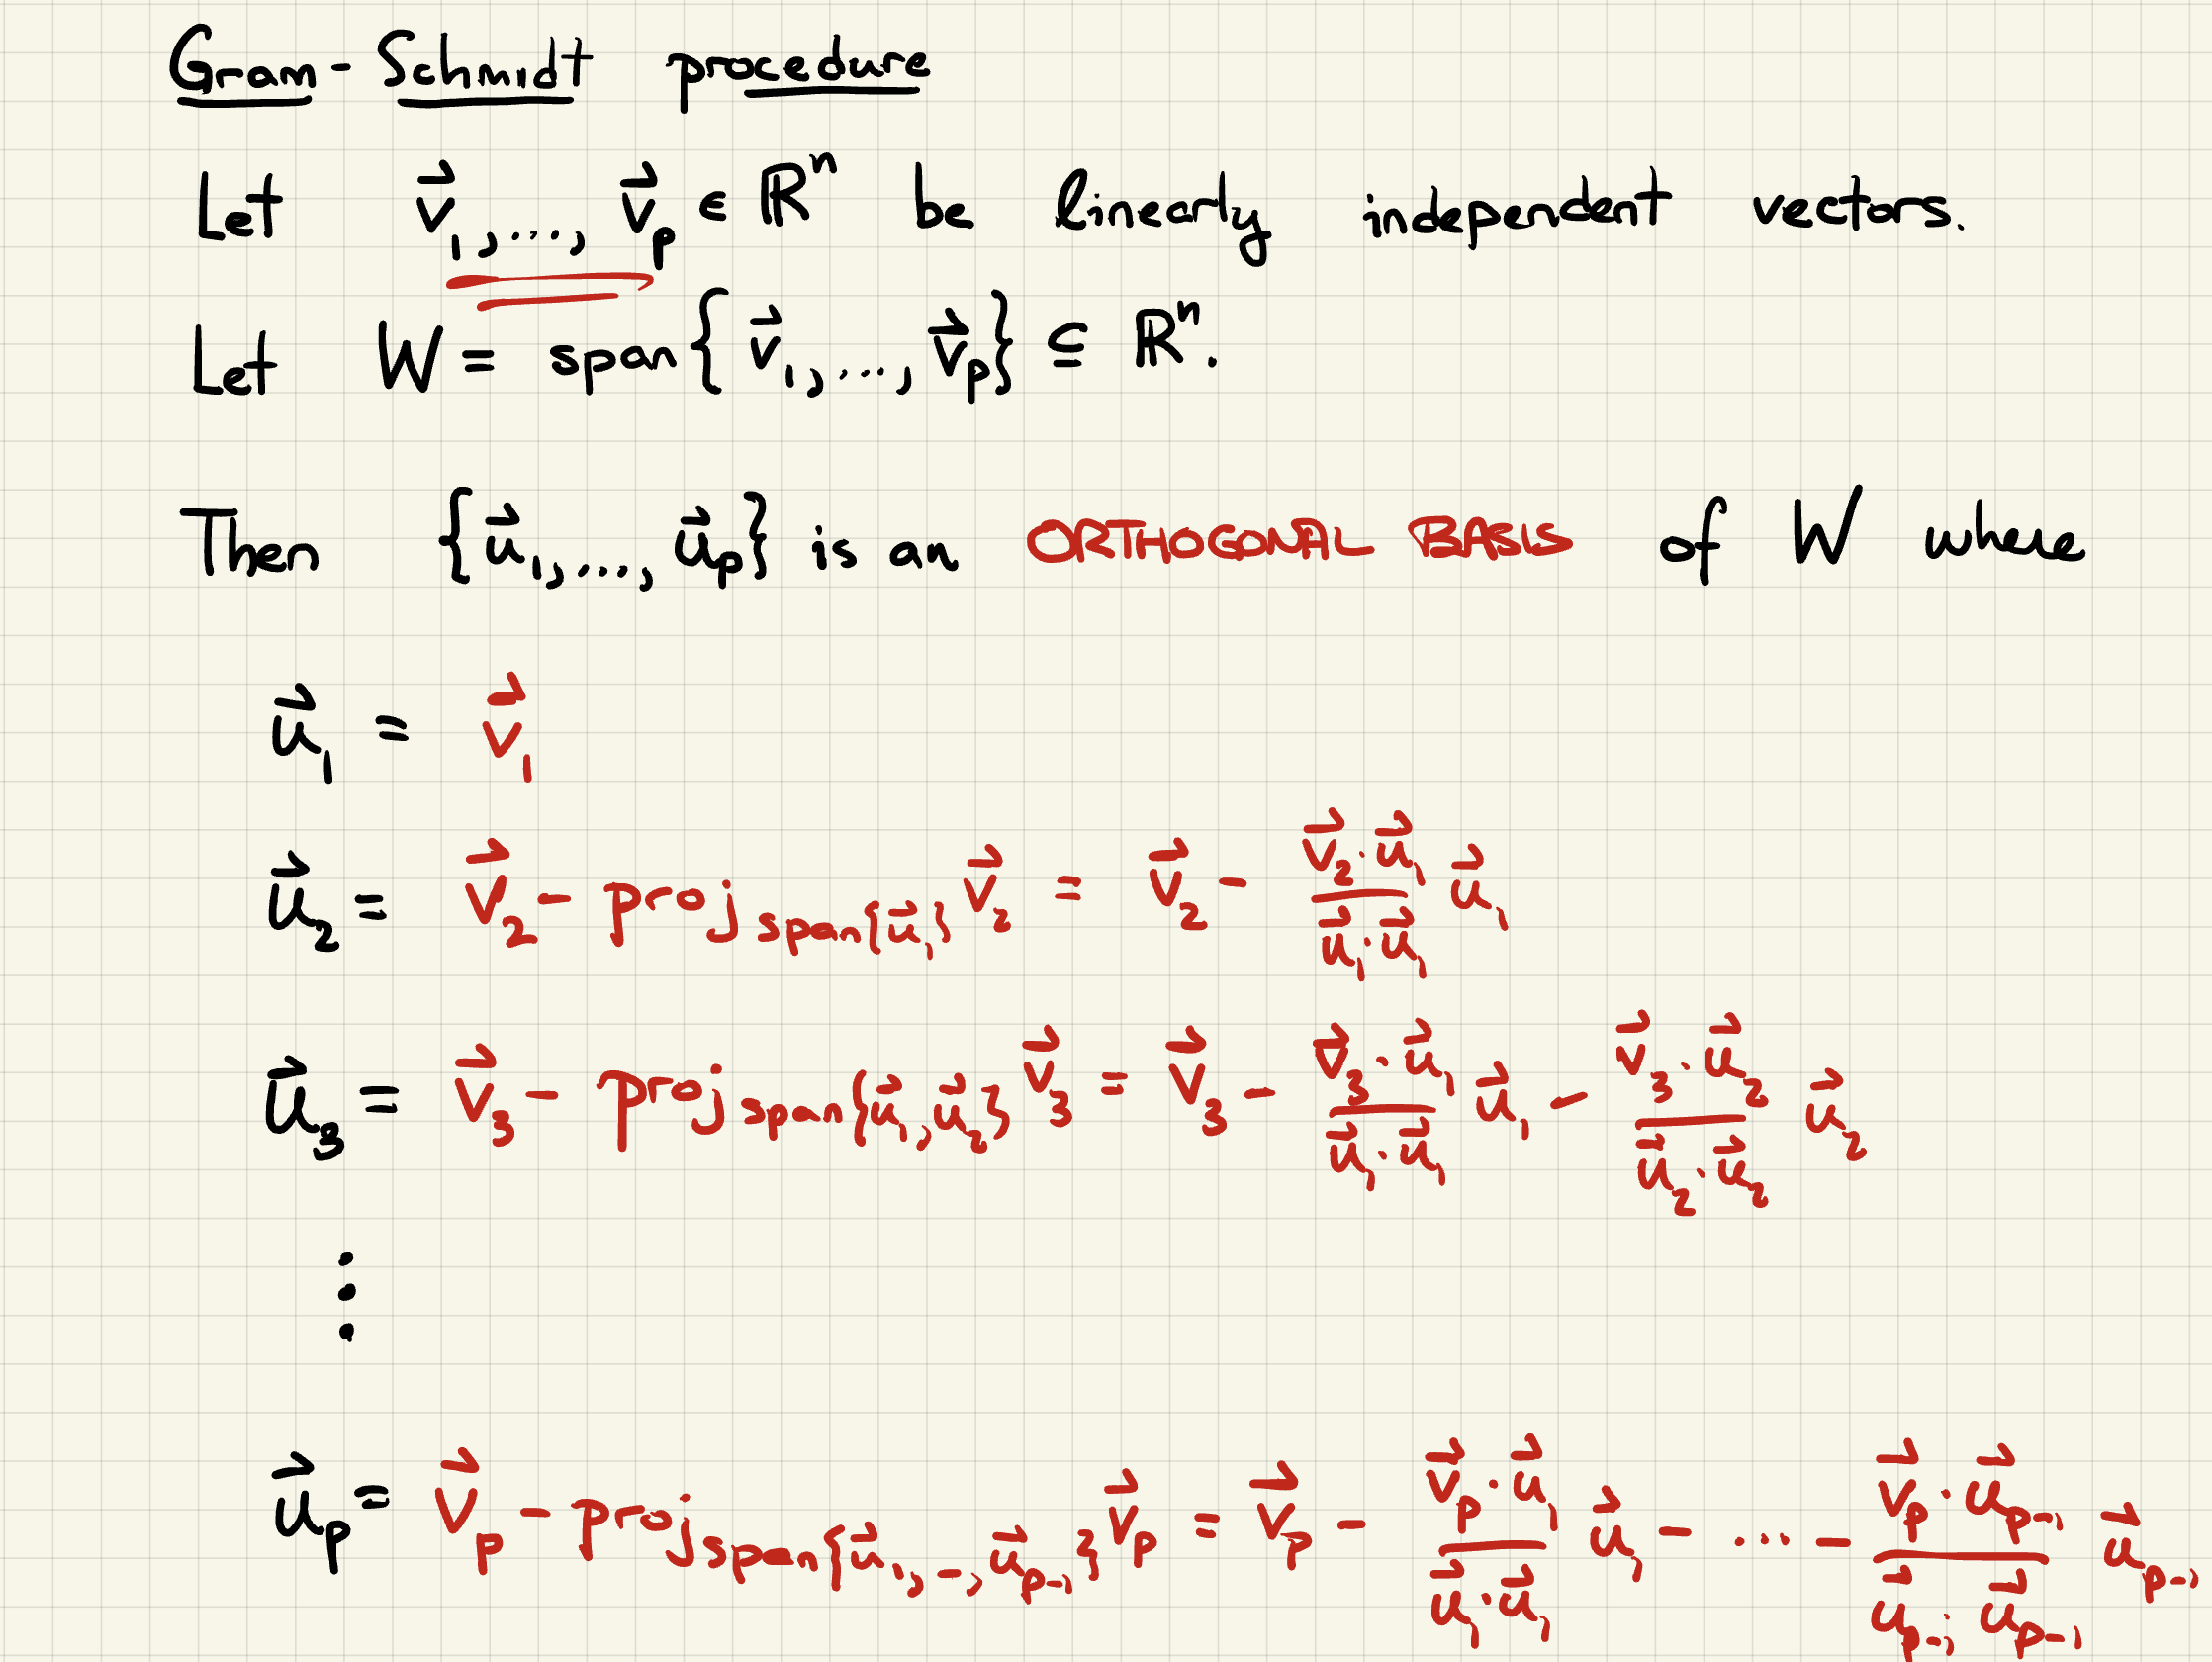 Gram-Schmidt procedure
Let $\vec{v}_1, \ldots, \vec{v}_p \in \mathbb{R}^n$ be linearly independent vectors.
Let $W = \text{span}\{\vec{v}_1, \ldots, \vec{v}_p\} \subseteq \mathbb{R}^n$.
Then $\{\vec{u}_1, \ldots, \vec{u}_p\}$ is an ORTHOGONAL BASIS of $W$ where
$\vec{u}_1 = \vec{v}_1$
$\vec{u}_2 = \vec{v}_2 - \text{proj}_{\text{span}\{\vec{u}_1\}} \vec{v}_2 = \vec{v}_2 - \frac{\vec{v}_2 \cdot \vec{u}_1}{\vec{u}_1 \cdot \vec{u}_1} \vec{u}_1$
$\vec{u}_3 = \vec{v}_3 - \text{proj}_{\text{span}\{\vec{u}_1, \vec{u}_2\}} \vec{v}_3 = \vec{v}_3 - \frac{\vec{v}_3 \cdot \vec{u}_1}{\vec{u}_1 \cdot \vec{u}_1} \vec{u}_1 - \frac{\vec{v}_3 \cdot \vec{u}_2}{\vec{u}_2 \cdot \vec{u}_2} \vec{u}_2$
$\vdots$
$\vec{u}_p = \vec{v}_p - \text{proj}_{\text{span}\{\vec{u}_1, \ldots, \vec{u}_{p-1}\}} \vec{v}_p = \vec{v}_p - \frac{\vec{v}_p \cdot \vec{u}_1}{\vec{u}_1 \cdot \vec{u}_1} \vec{u}_1 - \cdots - \frac{\vec{v}_p \cdot \vec{u}_{p-1}}{\vec{u}_{p-1} \cdot \vec{u}_{p-1}} \vec{u}_{p-1}$